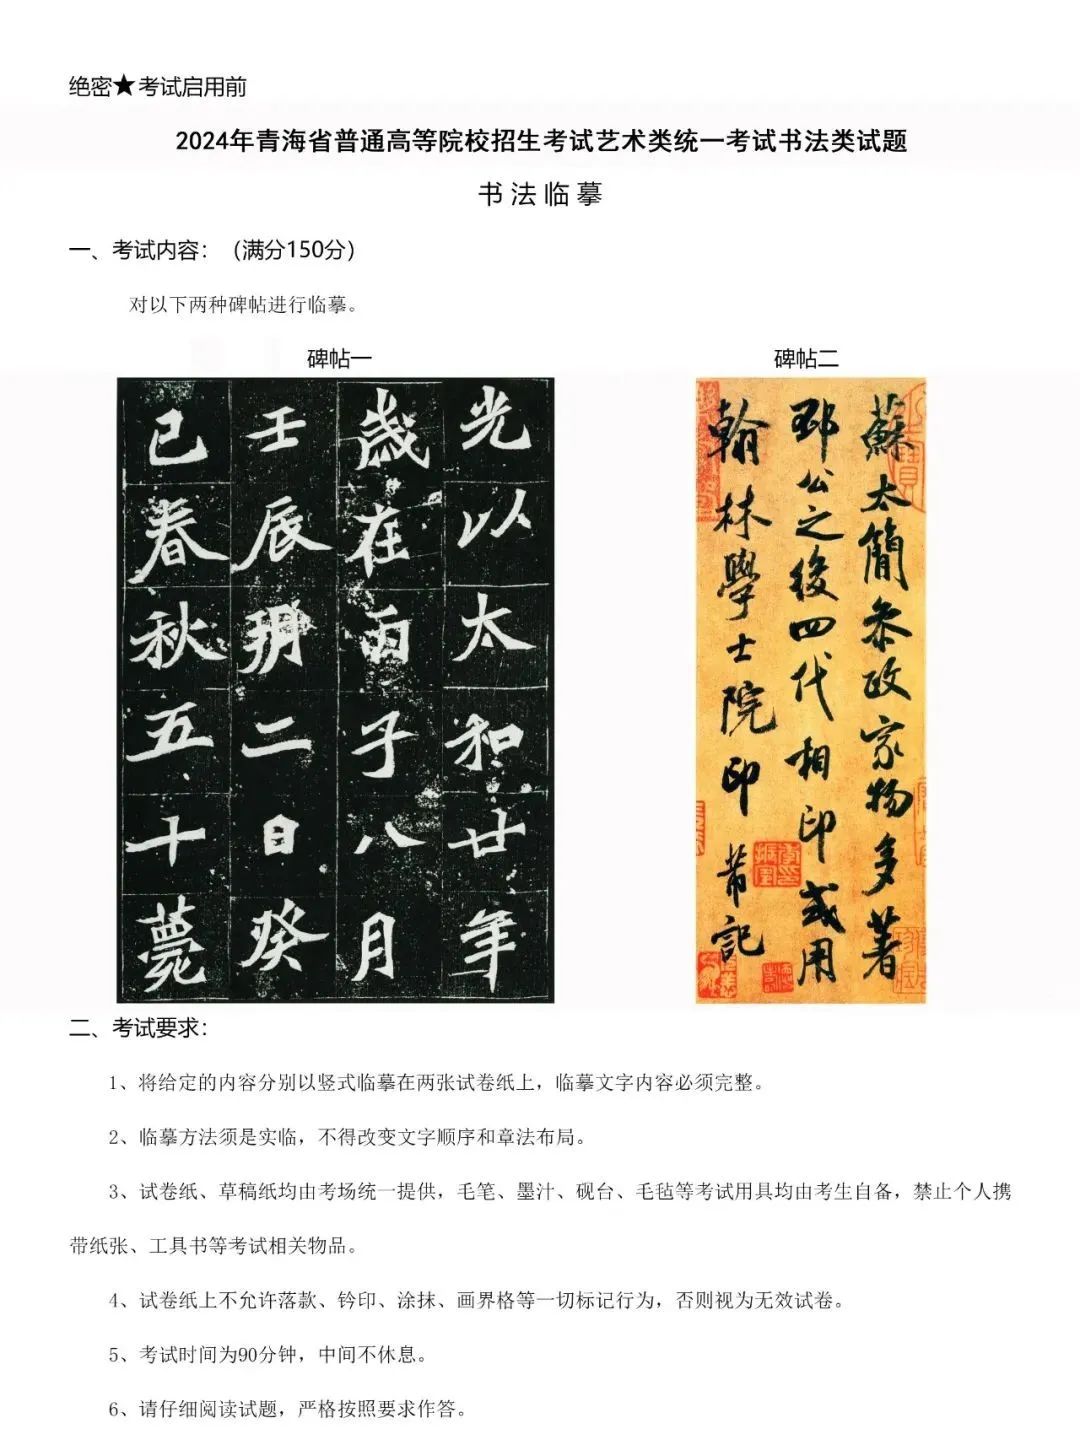 绝密★考试启用前
2024年青海省普通高等院校招生考试艺术类统一考试书法类试题
书法临摹
一、考试内容：（满分150分）
对以下两种碑帖进行临摹。
碑帖一
光以太和廿年
歲在丙子八月
壬辰朔二日癸
已春秋五十薨
碑帖二
蘇太簡參政家物多著
邳公之後四代相印或用
翰林學士院印芾記
二、考试要求：
1、将给定的内容分别以竖式临摹在两张试卷纸上，临摹文字内容必须完整。
2、临摹方法须是实临，不得改变文字顺序和章法布局。
3、试卷纸、草稿纸均由考场统一提供，毛笔、墨汁、砚台、毛毡等考试用具均由考生自备，禁止个人携
带纸张、工具书等考试相关物品。
4、试卷纸上不允许落款、钤印、涂抹、画界格等一切标记行为，否则视为无效试卷。
5、考试时间为90分钟，中间不休息。
6、请仔细阅读试题，严格按照要求作答。